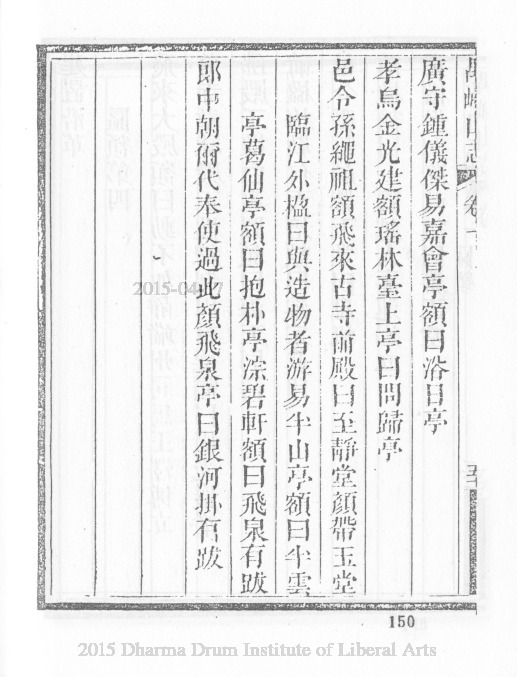 禺峽山志 卷一
廣守鍾儀傑易嘉會亭額曰浴日亭
孝烏金光建額瑤林臺上亭曰問歸亭
邑令孫繩祖額飛來古寺前殿曰至靜堂顏帶玉堂
臨江外楹曰與造物者游易半山亭額曰半雲
亭葛仙亭額曰抱朴亭淙碧軒額曰飛泉有跋
郎中朝爾代奉使過此顏飛泉亭曰銀河掛有跋
150
2015 Dharma Drum Institute of Liberal Arts